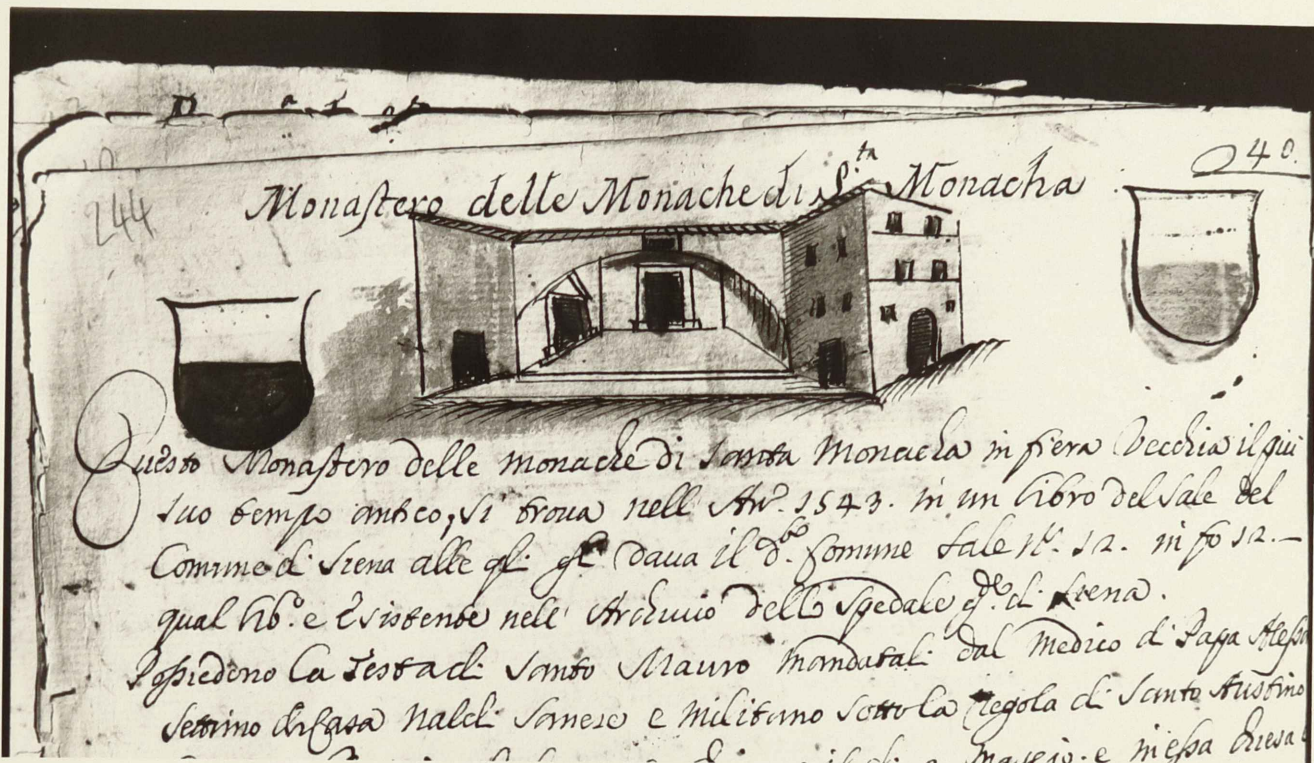 40.
244
Monastero delle Monache di S.ta Monacha
Questo Monastero delle monache di Santa Monacha in fiera Vecchia il più
suo tempo antico, si trova nell An.o 1543. in un libro del Sale del
Comune di Siena alle qli. dava il d.o Comune Sale N.o 12. in fo 12.—
qual lib.o e Esistente nell' Archivio dello Spedale di Siena.
Possiedono la Testa di Santo Mauro mandatali dal Medico di Papa Aless
settimo di Casa Naldi Sanese e Militano sotto la Regola di Santo Austino
e in essa Chiesa